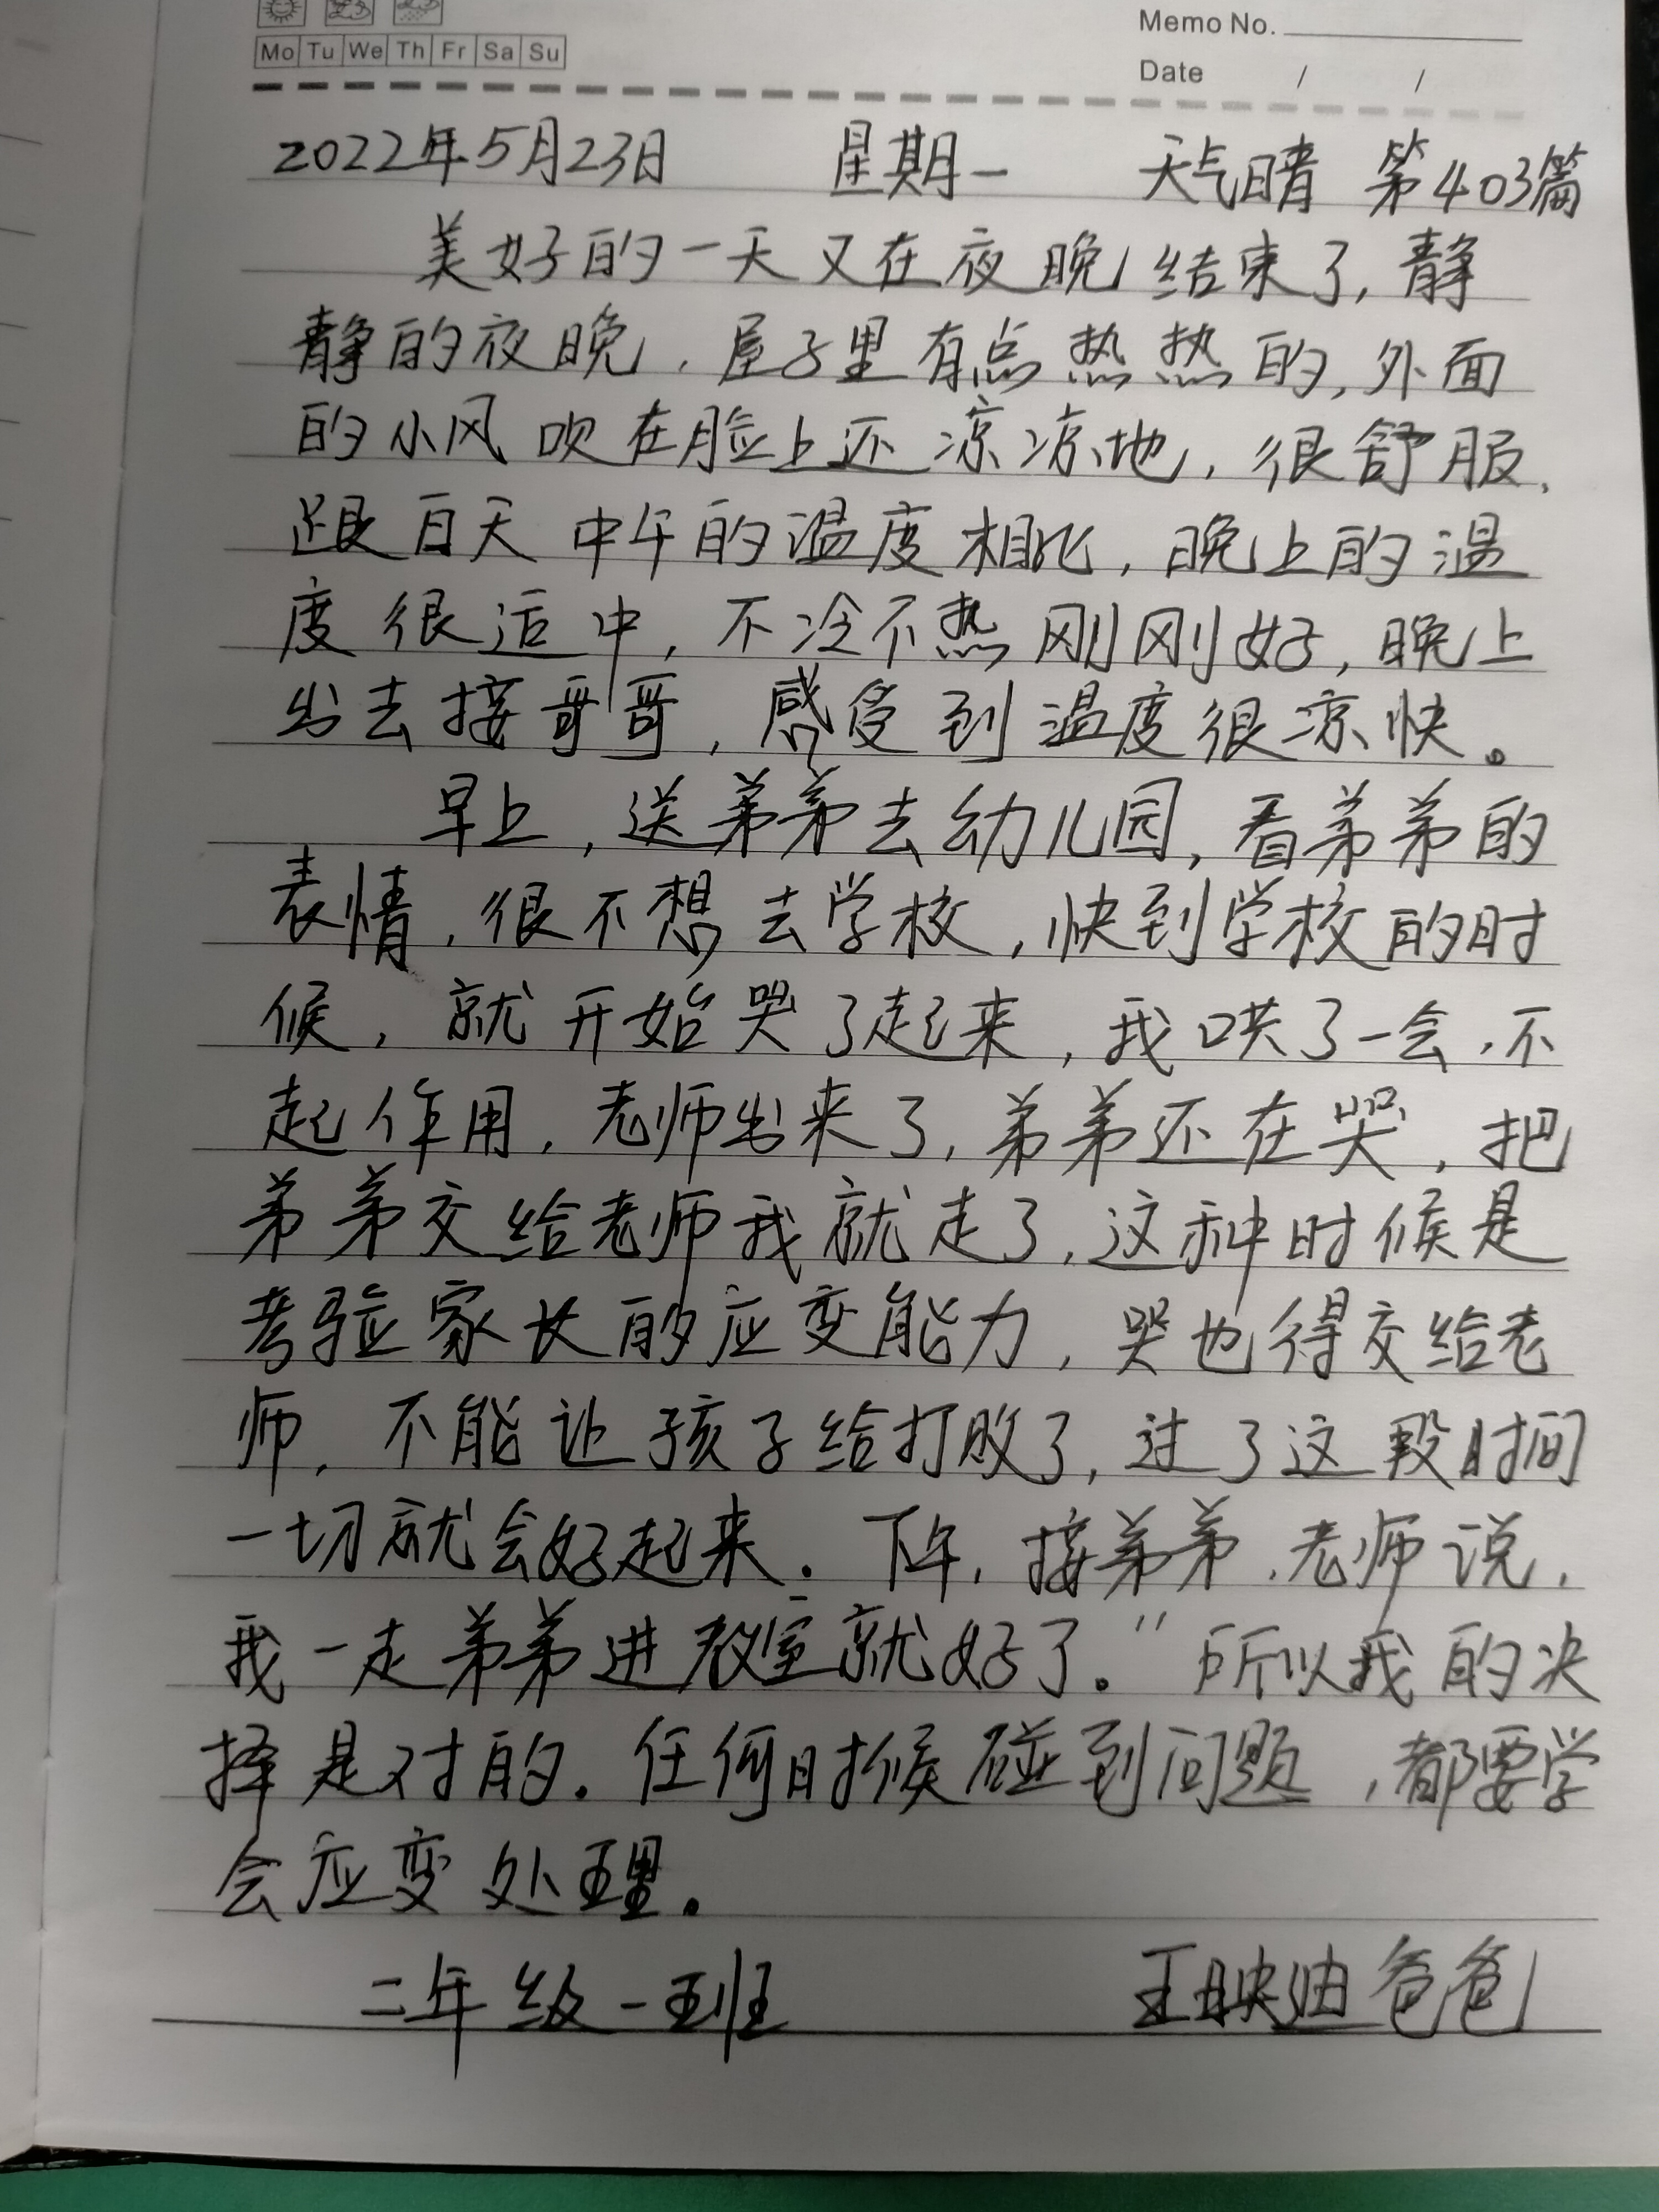 Memo No.
Mo Tu We Th Fr Sa Su
Date / /
2022年5月23日 星期一 天气晴 第403篇
美好的一天又在夜晚结束了,静
静的夜晚,屋子里有点热热的,外面
的小风吹在脸上还凉凉地,很舒服,
跟白天中午的温度相比,晚上的温
度很适中,不冷不热刚刚好,晚上
出去接哥哥,感受到温度很凉快。
早上,送弟弟去幼儿园,看弟弟的
表情,很不想去学校,快到学校的时
候,就开始哭了起来,我哄了一会,不
起作用,老师出来了,弟弟还在哭,把
弟弟交给老师我就走了,这种时候是
考验家长的应变能力,哭也得交给老
师,不能让孩子给打败了,过了这段时间
一切就会好起来.下午,接弟弟,老师说,
我一走弟弟进教室就好了。"所以我的决
择是对的.任何时候碰到问题,都要学
会应变处理.
二年级一班 王映迪爸爸